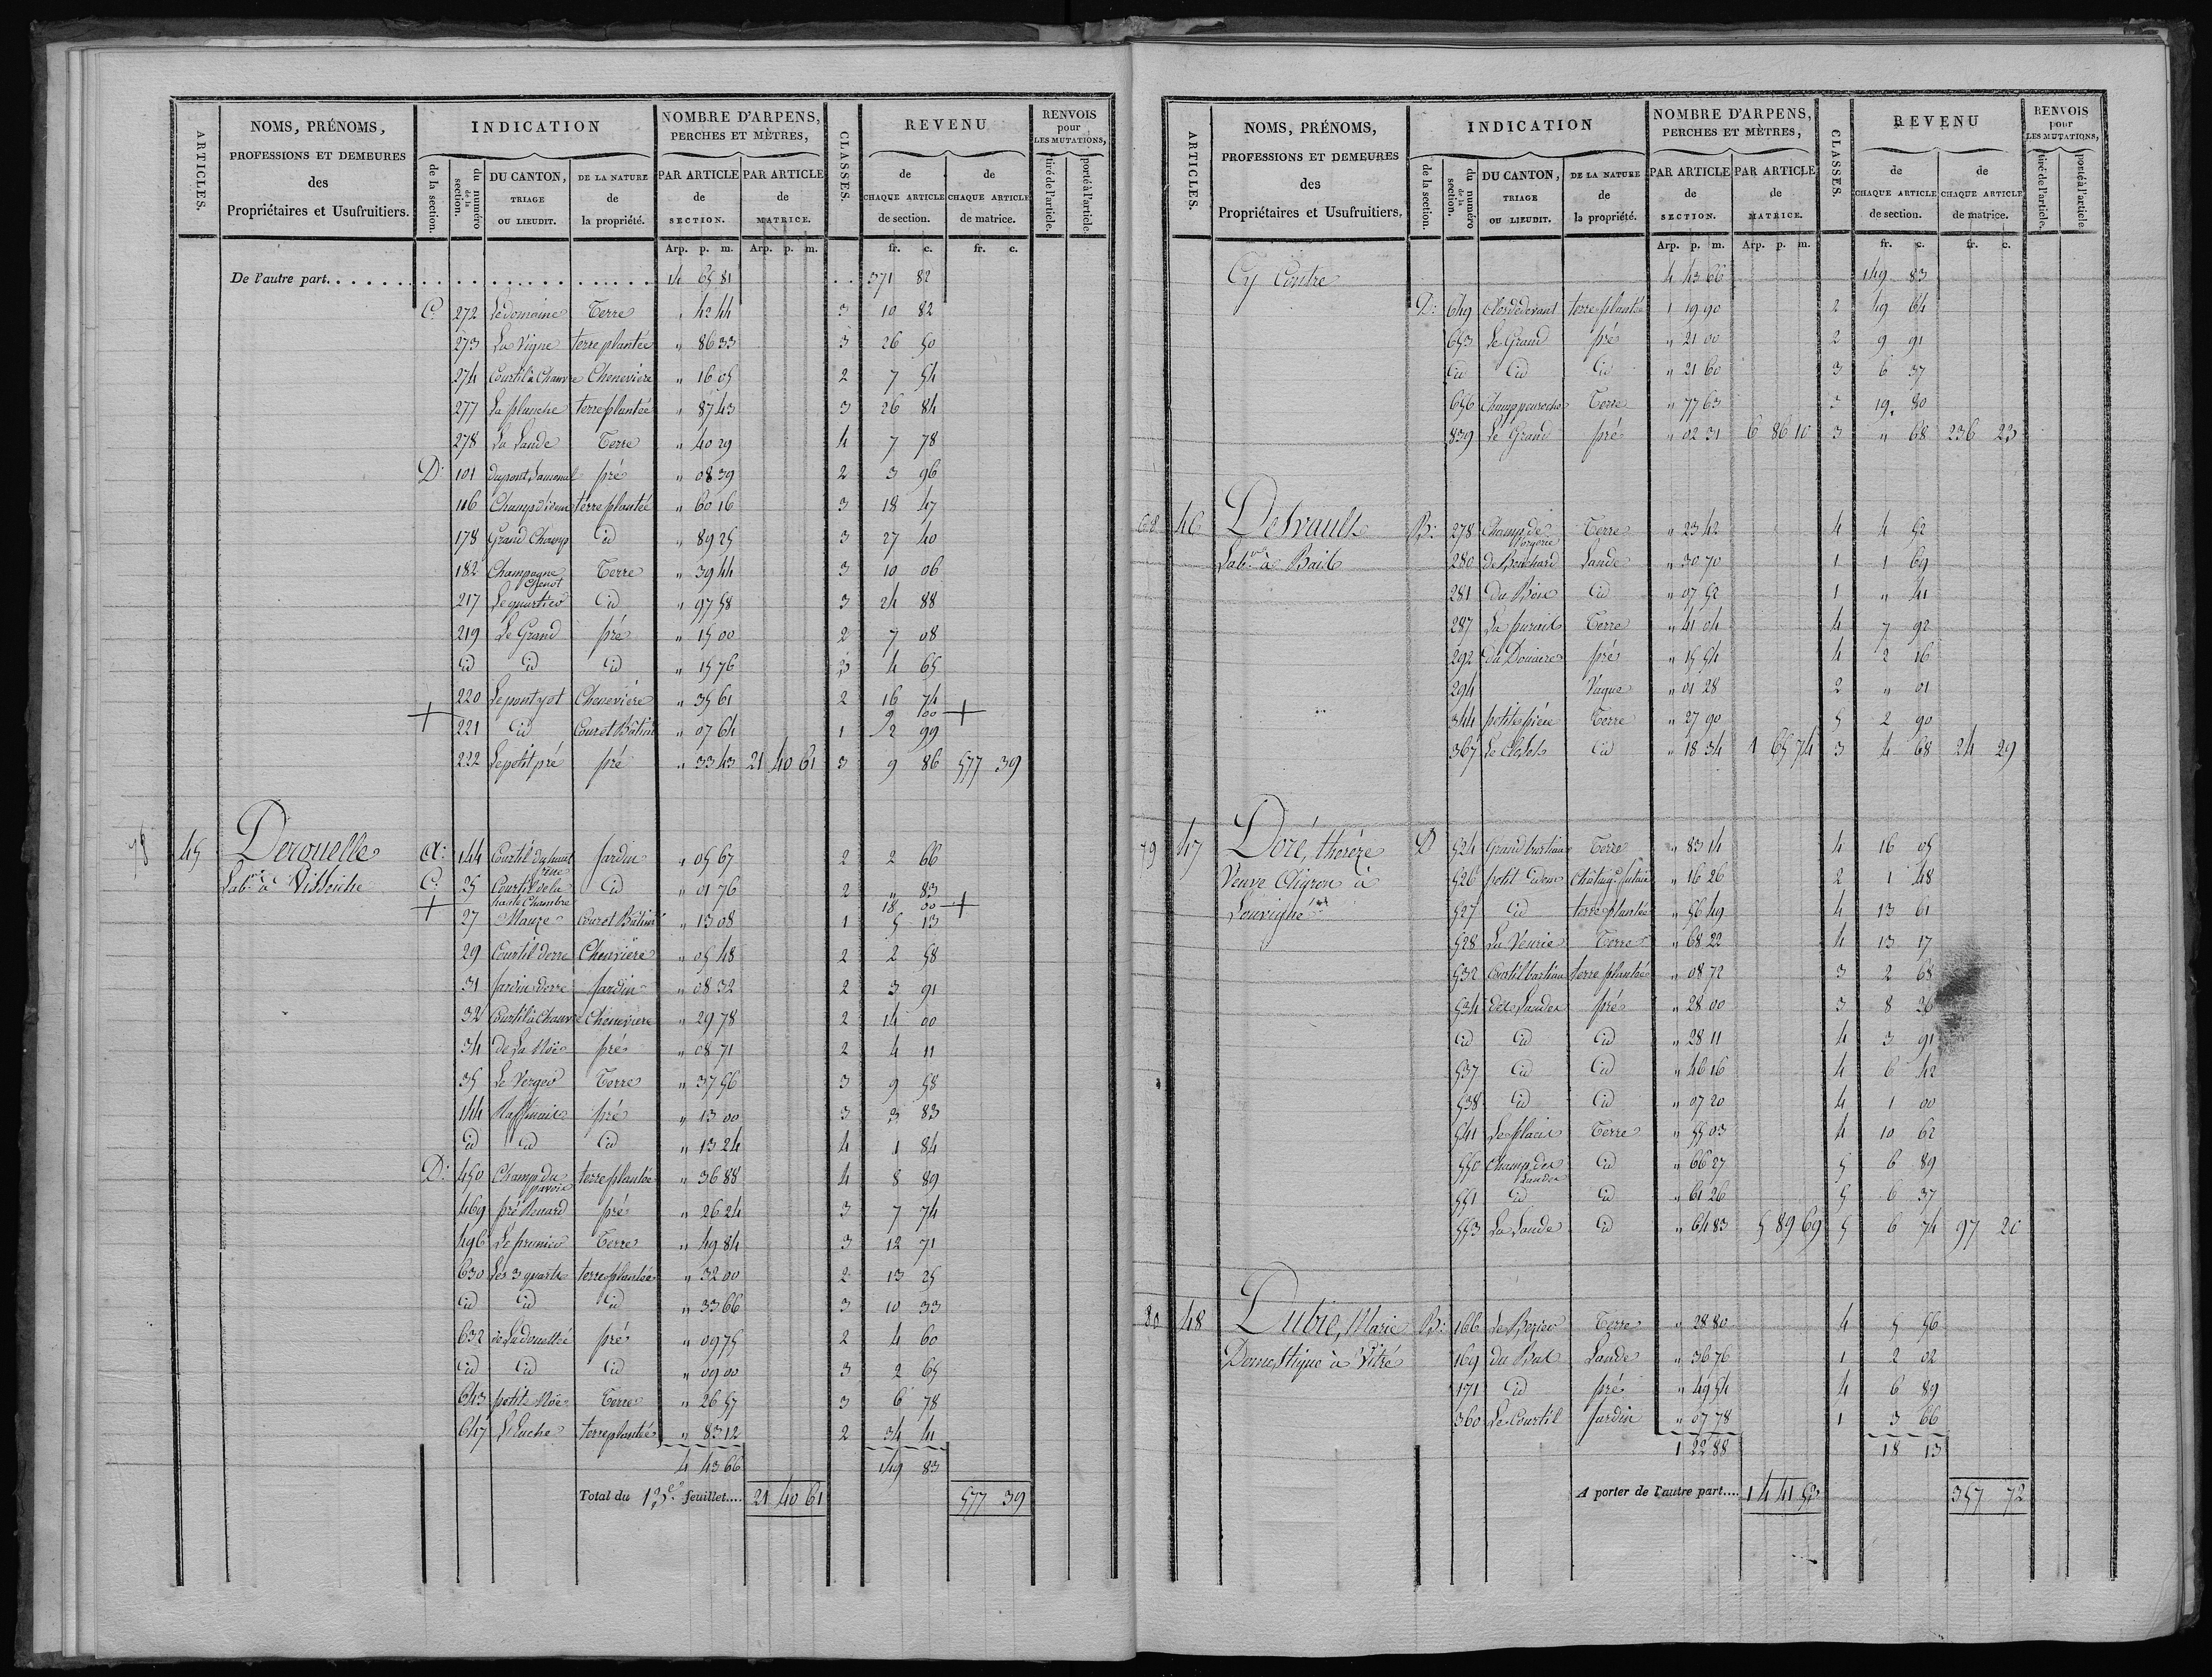 ARTICLES.
NOMS, PRÉNOMS,
PROFESSIONS ET DEMEURES
des
Propriétaires et Usufruitiers.
INDICATION
de la section.
du numéro de la section.
DU CANTON,
TRIAGE
OU LIEUDIT.
DE LA NATURE
de
la propriété.
NOMBRE D'ARPENS,
PERCHES ET MÈTRES,
PAR ARTICLE
de
SECTION.
PAR ARTICLE
de
MATRICE.
CLASSES.
REVENU
de
CHAQUE ARTICLE
de section.
de
CHAQUE ARTICLE
de matrice.
RENVOIS
pour
LES MUTATIONS,
tiré de l'article.
porté à l'article.
Arp. p. m. Arp. p. m. fr. c. fr. c.
De l'autre part. 14 65 81 371 82
C. 272 Ledomaine Terre " 42 44 3 10 82
273 La Vigne terre plantée " 86 33 3 26 50
274 Courtil à Chanvre Chenevière " 16 05 2 7 54
277 La planche terre plantée " 87 43 3 26 84
278 La Lande Terre " 40 29 4 7 78
D. 101 pré " 08 39 2 3 96
116 Champ d'idem terre plantée " 60 16 3 18 47
178 Grand Champ id " 89 25 3 27 40
182 Champagne Terre " 39 44 3 10 06
217 Le quartier id " 97 58 3 24 88
219 Le Grand pré " 15 00 2 7 08
id id id " 15 76 3 4 65
220 Chenevière " 35 61 2 16 74
+ 9 00 +
221 id Cour et Bâtim " 07 64 1 2 99
222 Le petit pré pré " 33 43 21 40 61 3 9 86 577 39
78 45 Derouelle a. 144 Courtil du haut jardin " 05 67 2 2 66
Lab.r à Visseiche C. 25 Courtil de la id " 01 76 2 " 83
haute Chambre
+ 18 00 +
27 Cour et Bâtim " 13 08 1 5 13
29 Courtil derre Chenevière " 05 48 2 2 58
31 jardin derre jardin " 08 32 2 3 91
32 Courtil à Chanvre Chenevière " 29 78 2 14 00
34 de La Noë pré " 08 71 2 4 11
35 Le Verger Terre " 37 56 3 9 58
144 pré " 13 00 3 3 83
id id id " 13 24 4 1 84
D. 450 Champ du terre plantée " 36 88 4 8 89
469 pré Renard pré " 26 24 3 7 74
496 Le prunier Terre " 49 84 3 12 71
630 Les 3 quarts terre plantée " 32 00 2 13 25
id id id " 33 66 3 10 33
632 pré " 09 75 2 4 60
id id id " 09 00 3 2 65
643 petite Noë Terre " 26 57 3 6 78
647 terre plantée " 83 12 2 34 41
4 43 66 149 83
Total du 12.e feuillet.... 21 40 61 577 39
ARTICLES.
NOMS, PRÉNOMS,
PROFESSIONS ET DEMEURES
des
Propriétaires et Usufruitiers.
INDICATION
de la section.
du numéro de la section.
DU CANTON,
TRIAGE
OU LIEUDIT.
DE LA NATURE
de
la propriété.
NOMBRE D'ARPENS,
PERCHES ET MÈTRES,
PAR ARTICLE
de
SECTION.
PAR ARTICLE
de
MATRICE.
CLASSES.
REVENU
de
CHAQUE ARTICLE
de section.
de
CHAQUE ARTICLE
de matrice.
RENVOIS
pour
LES MUTATIONS,
tiré de l'article.
porté à l'article.
Arp. p. m. Arp. p. m. fr. c. fr. c.
Cy Contre 4 43 66 149 83
D. 649 Clos de devant terre plantée 1 19 90 2 49 64
653 Le Grand pré " 21 00 2 9 91
id id id " 21 60 3 6 37
656 Terre " 77 63 3 19 80
839 Le Grand pré " 02 31 6 86 10 3 " 68 236 23
68 46 Desvault B. 278 Champ de Terre " 23 42 4 4 52
Lab.r à Bail 280 de Bouchard Lande " 30 70 1 1 69
281 du Bois id " 07 52 1 " 41
287 Terre " 41 04 4 7 92
292 du Douaire pré " 15 54 4 2 16
294 Vague " 01 28 2 " 01
344 petite pièce Terre " 27 90 5 2 90
367 Le Closel id " 18 34 1 65 74 3 4 68 24 29
79 47 Doré, thérèze D 524 Grand bastian Terre " 83 14 4 16 05
Veuve Cligron à 526 petit idem Chataig. futaie " 16 26 2 1 48
Louvigné 527 id terre plantée " 56 49 4 13 61
528 La Veurie Terre " 68 22 4 13 17
532 Courtil bastian terre plantée " 08 72 3 2 68
534 des Landes pré " 28 00 3 8 26
id id id " 28 11 4 3 91
537 id id " 46 16 4 6 42
538 id id " 07 20 4 1 00
541 Le placis Terre " 55 03 4 10 62
550 Champ des id " 66 27 5 6 89
Landes
551 id id " 61 26 5 6 37
553 La Lande id " 64 83 5 89 69 5 6 74 97 20
80 48 Dubié, Marie B. 166 Terre " 28 80 4 5 56
Domestique à Vitré 169 du Bas Lande " 36 76 1 2 02
171 id pré " 49 54 4 6 89
360 Le Courtil jardin " 07 78 1 3 66
1 22 88 18 13
A porter de l'autre part.... 14 41 53 357 72